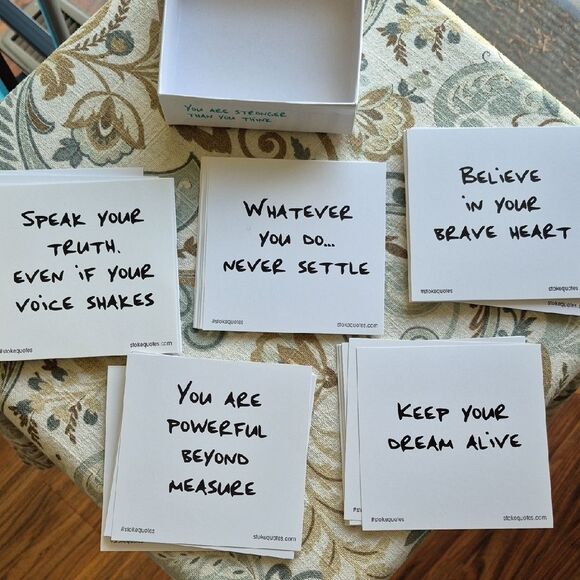 YOU ARE STRONGER
THAN YOU THINK
SPEAK YOUR
TRUTH.
EVEN IF YOUR
VOICE SHAKES
#stokequotes
stokequotes.com
WHATEVER
YOU DO...
NEVER SETTLE
#stokequotes
stokequotes.com
BELIEVE
IN YOUR
BRAVE HEART
#stokequotes
stokequotes
YOU ARE
POWERFUL
BEYOND
MEASURE
#stokequotes
stokequotes.com
KEEP YOUR
DREAM ALIVE
#stokequotes
stokequotes.com